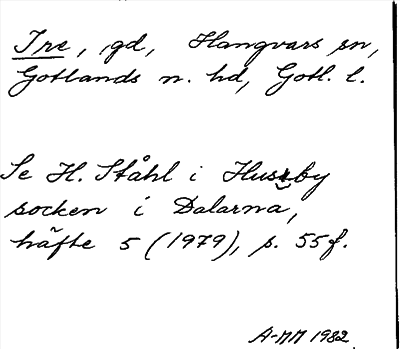 Ire, gd, Hangvars sn,
Gotlands n. hd, Gotl. l.
Se H. Ståhl i Husby
socken i Dalarna,
häfte 5 (1979), s. 55f.
A-MM 1982